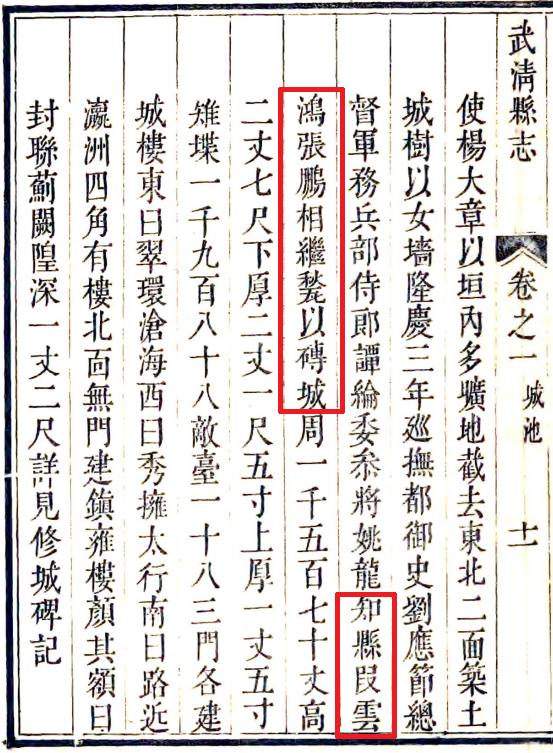 武清縣志 卷之一 城池 十一
使楊大章以垣內多曠地截去東北二面築土
城樹以女墻隆慶三年廵撫都御史劉應節總
督軍務兵部侍郎譚綸委叅將姚龍知縣叚雲
鴻張鵬相繼甃以磚城周一千五百七十丈高
二丈七尺下厚二丈一尺五寸上厚一丈五寸
雉堞一千九百八十八敵臺一十八三門各建
城樓東曰翠環滄海西曰秀擁太行南曰路近
瀛洲四角有樓北靣無門建鎮雍樓顏其額曰
封聯薊闕隍深一丈二尺詳見修城碑記